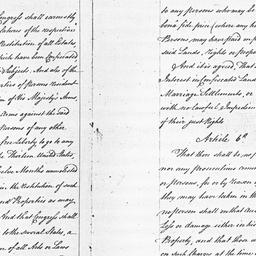 Congress shall earnestly
latures of the respective
Restitution of all Estates,
which have been Confiscated
Subjects: And also of the
perties of Persons resident
on of his Majesty's Arms,
Arms against the said
Persons of any other
free Liberty to go to any
the Thirteen United States,
Twelve Months unmolested
in the Restitution of such
and Properties as may,
And that Congress shall
to the several States, a
on of all Acts or Laws
to any Persons who may be
bona fide price (where any ha
Persons may have paid on p
said Lands, Rights or Prope
And it is agreed, That a
Interest in Confiscated Lands
Marriage Settlements, or
with no Lawful Impedim
of their just Rights
Article 6th
That there shall be no f
nor any Prosecutions comm
or Persons, for or by reason o
they may have taken in th
no person shall on that Acc
Loss or damage either in his
Property; and that those w
on such Charges at the time